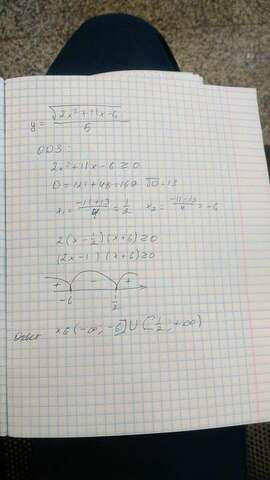 y = √(2x²+11x-6) / 5
ОДЗ:
2x²+11x-6 ≥ 0
D = 121+48 = 169 √D = 13
x₁ = (-11+13)/4 = 1/2 x₂ = (-11-13)/4 = -6
2(x-1/2)(x+6) ≥ 0
(2x-1)(x+6) ≥ 0
+ - +
-6 1/2
Ответ x ∈ (-∞, -6] ∪ [1/2, +∞)